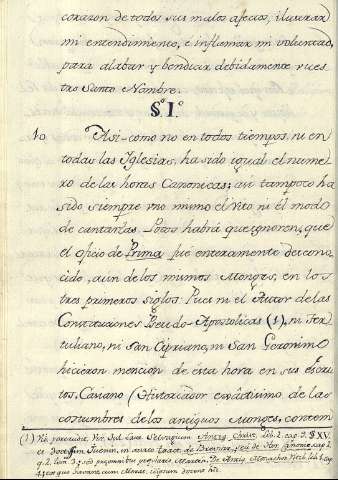 corazon de todos sus malos afectos, ilustrar
mi entendimiento, è inflamar mi voluntad,
para alabar y bendicir debidamente vues
tro Santo Nombre.
§.º I.º
10 Asi como no en todos tiempos, ni en
todas las Iglesias, ha sido igual el nume
ro de las horas Canonicas; asi tampoco ha
sido siempre uno mismo el Rito ni èl modo
de cantarlas. Pocos habrá que ignoren, que
el oficio de Prima fuè enteramente descono
cido, aun de los mismos Monges, en los
tres primeros siglos. Pues ni el Autor de las
Constituciones Pseudo-Apostolicas (1), ni Ter
tuliano, ni San Cipriano, ni San Geronimo
hicieron mencion de esta hora en sus escri
tos. Casiano (Historiador exâctisimo de las
costumbres de los antiguos Monges, contem
(1) Jul. Selvagium Antiq. Christ. Lib. 2. cap. 9. § XV.